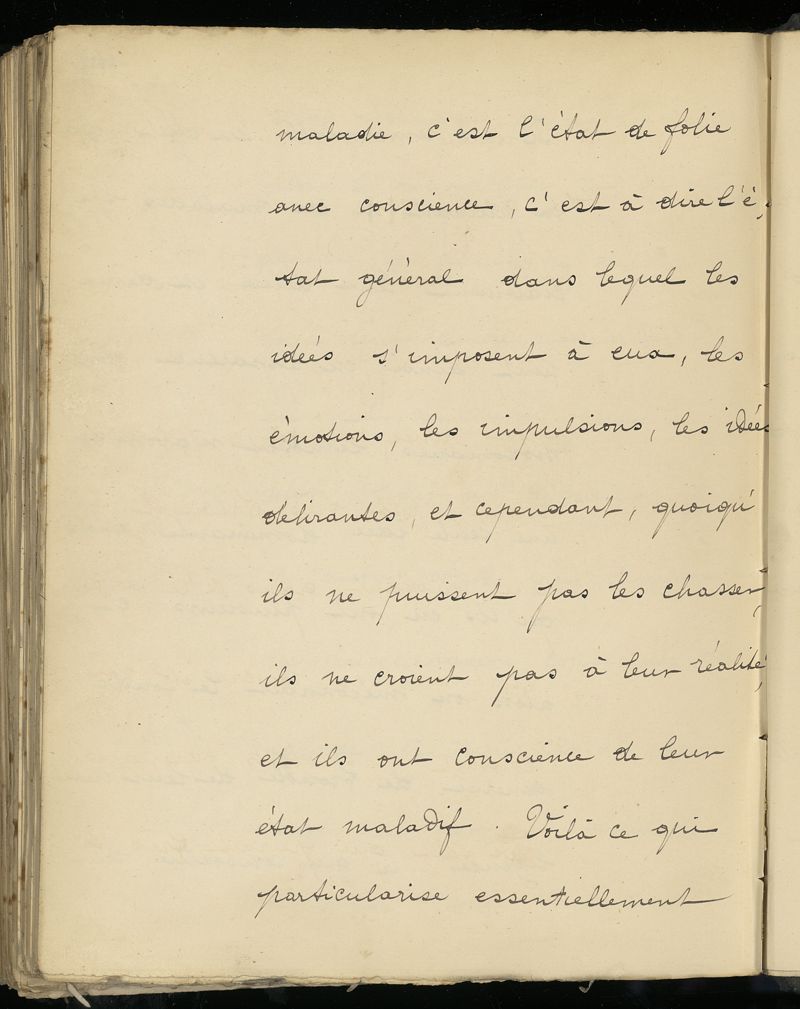 maladie, c'est l'état de folie
avec conscience, c'est à dire l'é-
tat général dans lequel les
idées s'imposent à eux, les
émotions, les impulsions, les idées
delirantes, et cependant, quoiqu'
ils ne puissent pas les chasser,
ils ne croient pas à leur réalité,
et ils ont conscience de leur
état maladif. Voilà ce qui
particularise essentiellement